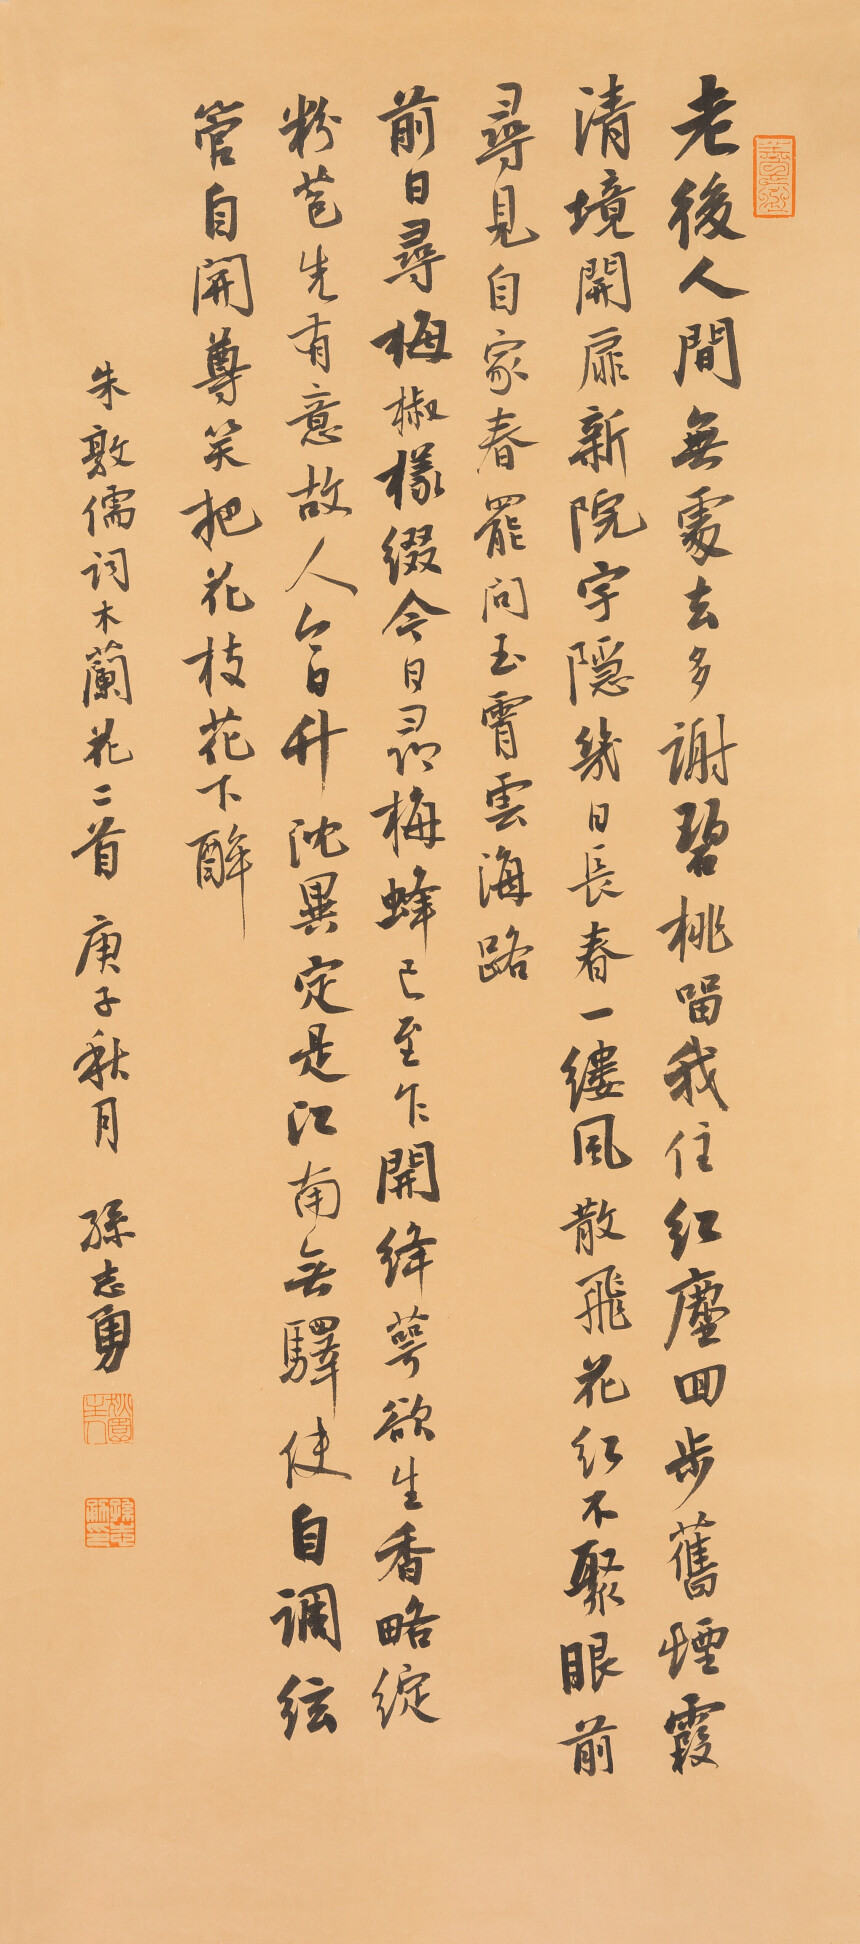 老後人間無處去多謝碧桃留我住紅塵回步舊煙霞
清境開扉新院宇隱幾日長春一縷風散飛花紅不聚眼前
尋見自家春罷問玉霄雲海路
前日尋梅椒樣綴今日尋梅蜂已至乍開絳萼欲生香略綻
粉苞先有意故人今日升沈異定是江南無驛使自調絃
管自開尊笑把花枝花下醉
朱敦儒詞木蘭花二首 庚子秋月 孫志勇
孫志勇印